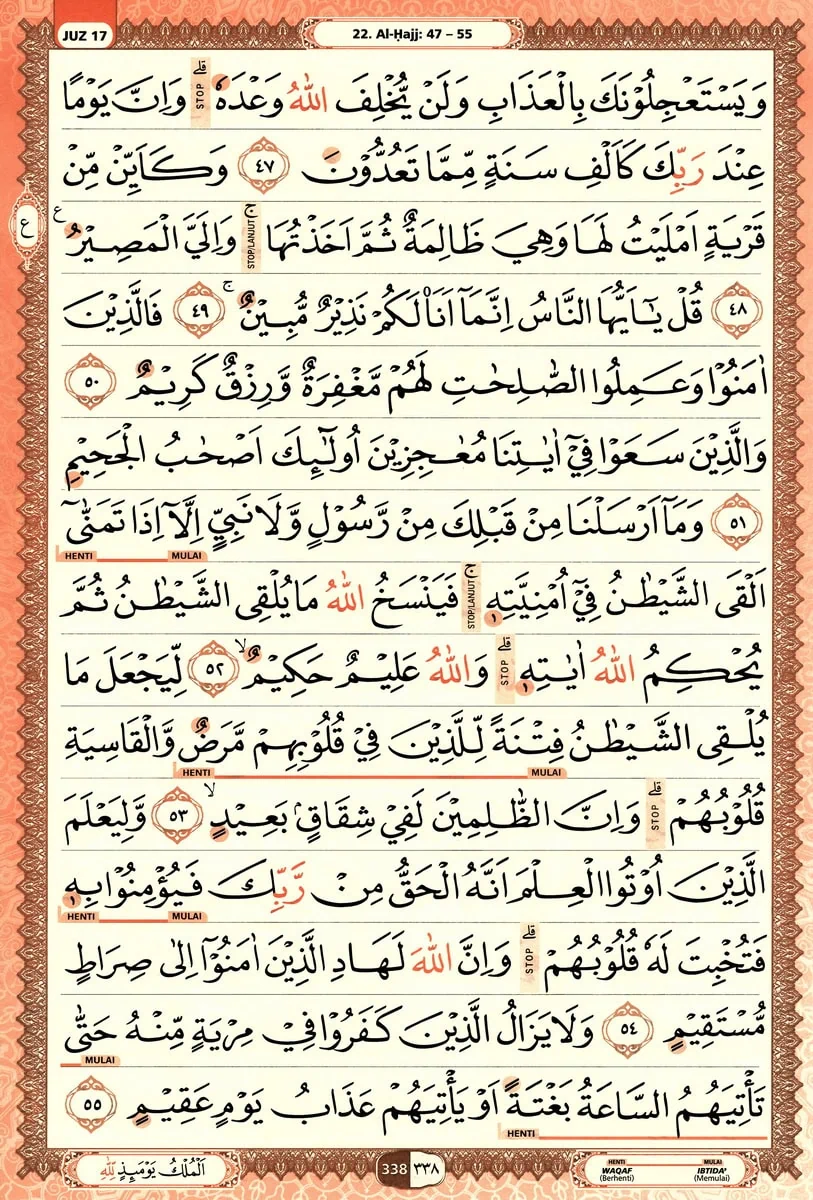 JUZ 17
22. Al-Ḥajj: 47 – 55
وَيَسْتَعْجِلُوْنَكَ بِالْعَذَابِ وَلَنْ يُّخْلِفَ اللّٰهُ وَعْدَهٗۗ STOP وَاِنَّ يَوْمًا
عِنْدَ رَبِّكَ كَاَلْفِ سَنَةٍ مِّمَّا تَعُدُّوْنَ ٤٧ وَكَاَيِّنْ مِّنْ
قَرْيَةٍ اَمْلَيْتُ لَهَا وَهِيَ ظَالِمَةٌ ثُمَّ اَخَذْتُهَاۚ STOP/LANJUT وَاِلَيَّ الْمَصِيْرُ ع
ع
٤٨ قُلْ يٰٓاَيُّهَا النَّاسُ اِنَّمَآ اَنَا۠ لَكُمْ نَذِيْرٌ مُّبِيْنٌۚ ٤٩ فَالَّذِيْنَ
اٰمَنُوْا وَعَمِلُوا الصّٰلِحٰتِ لَهُمْ مَّغْفِرَةٌ وَّرِزْقٌ كَرِيْمٌ ٥٠
وَالَّذِيْنَ سَعَوْا فِيْٓ اٰيٰتِنَا مُعٰجِزِيْنَ اُولٰۤىِٕكَ اَصْحٰبُ الْجَحِيْمِ
٥١ وَمَآ اَرْسَلْنَا مِنْ قَبْلِكَ مِنْ رَّسُوْلٍ وَّلَا نَبِيٍّ اِلَّآ اِذَا تَمَنّٰىٓ
HENTI MULAI
اَلْقَى الشَّيْطٰنُ فِيْٓ اُمْنِيَّتِهٖۚ STOP/LANJUT فَيَنْسَخُ اللّٰهُ مَا يُلْقِى الشَّيْطٰنُ ثُمَّ
يُحْكِمُ اللّٰهُ اٰيٰتِهٖۗ STOP وَاللّٰهُ عَلِيْمٌ حَكِيْمٌۙ ٥٢ لِّيَجْعَلَ مَا
يُلْقِى الشَّيْطٰنُ فِتْنَةً لِّلَّذِيْنَ فِيْ قُلُوْبِهِمْ مَّرَضٌ وَّالْقَاسِيَةِ
HENTI MULAI
قُلُوْبُهُمْۗ STOP وَاِنَّ الظّٰلِمِيْنَ لَفِيْ شِقَاقٍۢ بَعِيْدٍۙ ٥٣ وَّلِيَعْلَمَ
الَّذِيْنَ اُوْتُوا الْعِلْمَ اَنَّهُ الْحَقُّ مِنْ رَّبِّكَ فَيُؤْمِنُوْا بِهٖ
HENTI MULAI
فَتُخْبِتَ لَهٗ قُلُوْبُهُمْۗ STOP وَاِنَّ اللّٰهَ لَهَادِ الَّذِيْنَ اٰمَنُوْٓا اِلٰى صِرَاطٍ
مُّسْتَقِيْمٍ ٥٤ وَلَا يَزَالُ الَّذِيْنَ كَفَرُوْا فِيْ مِرْيَةٍ مِّنْهُ حَتّٰى
MULAI
تَأْتِيَهُمُ السَّاعَةُ بَغْتَةً اَوْ يَأْتِيَهُمْ عَذَابُ يَوْمٍ عَقِيْمٍ ٥٥
HENTI
اَلْمُلْكُ يَوْمَىِٕذٍ لِّلّٰهِ
338 ٣٣٨
HENTI MULAI
WAQAF IBTIDA'
(Berhenti) (Memulai)